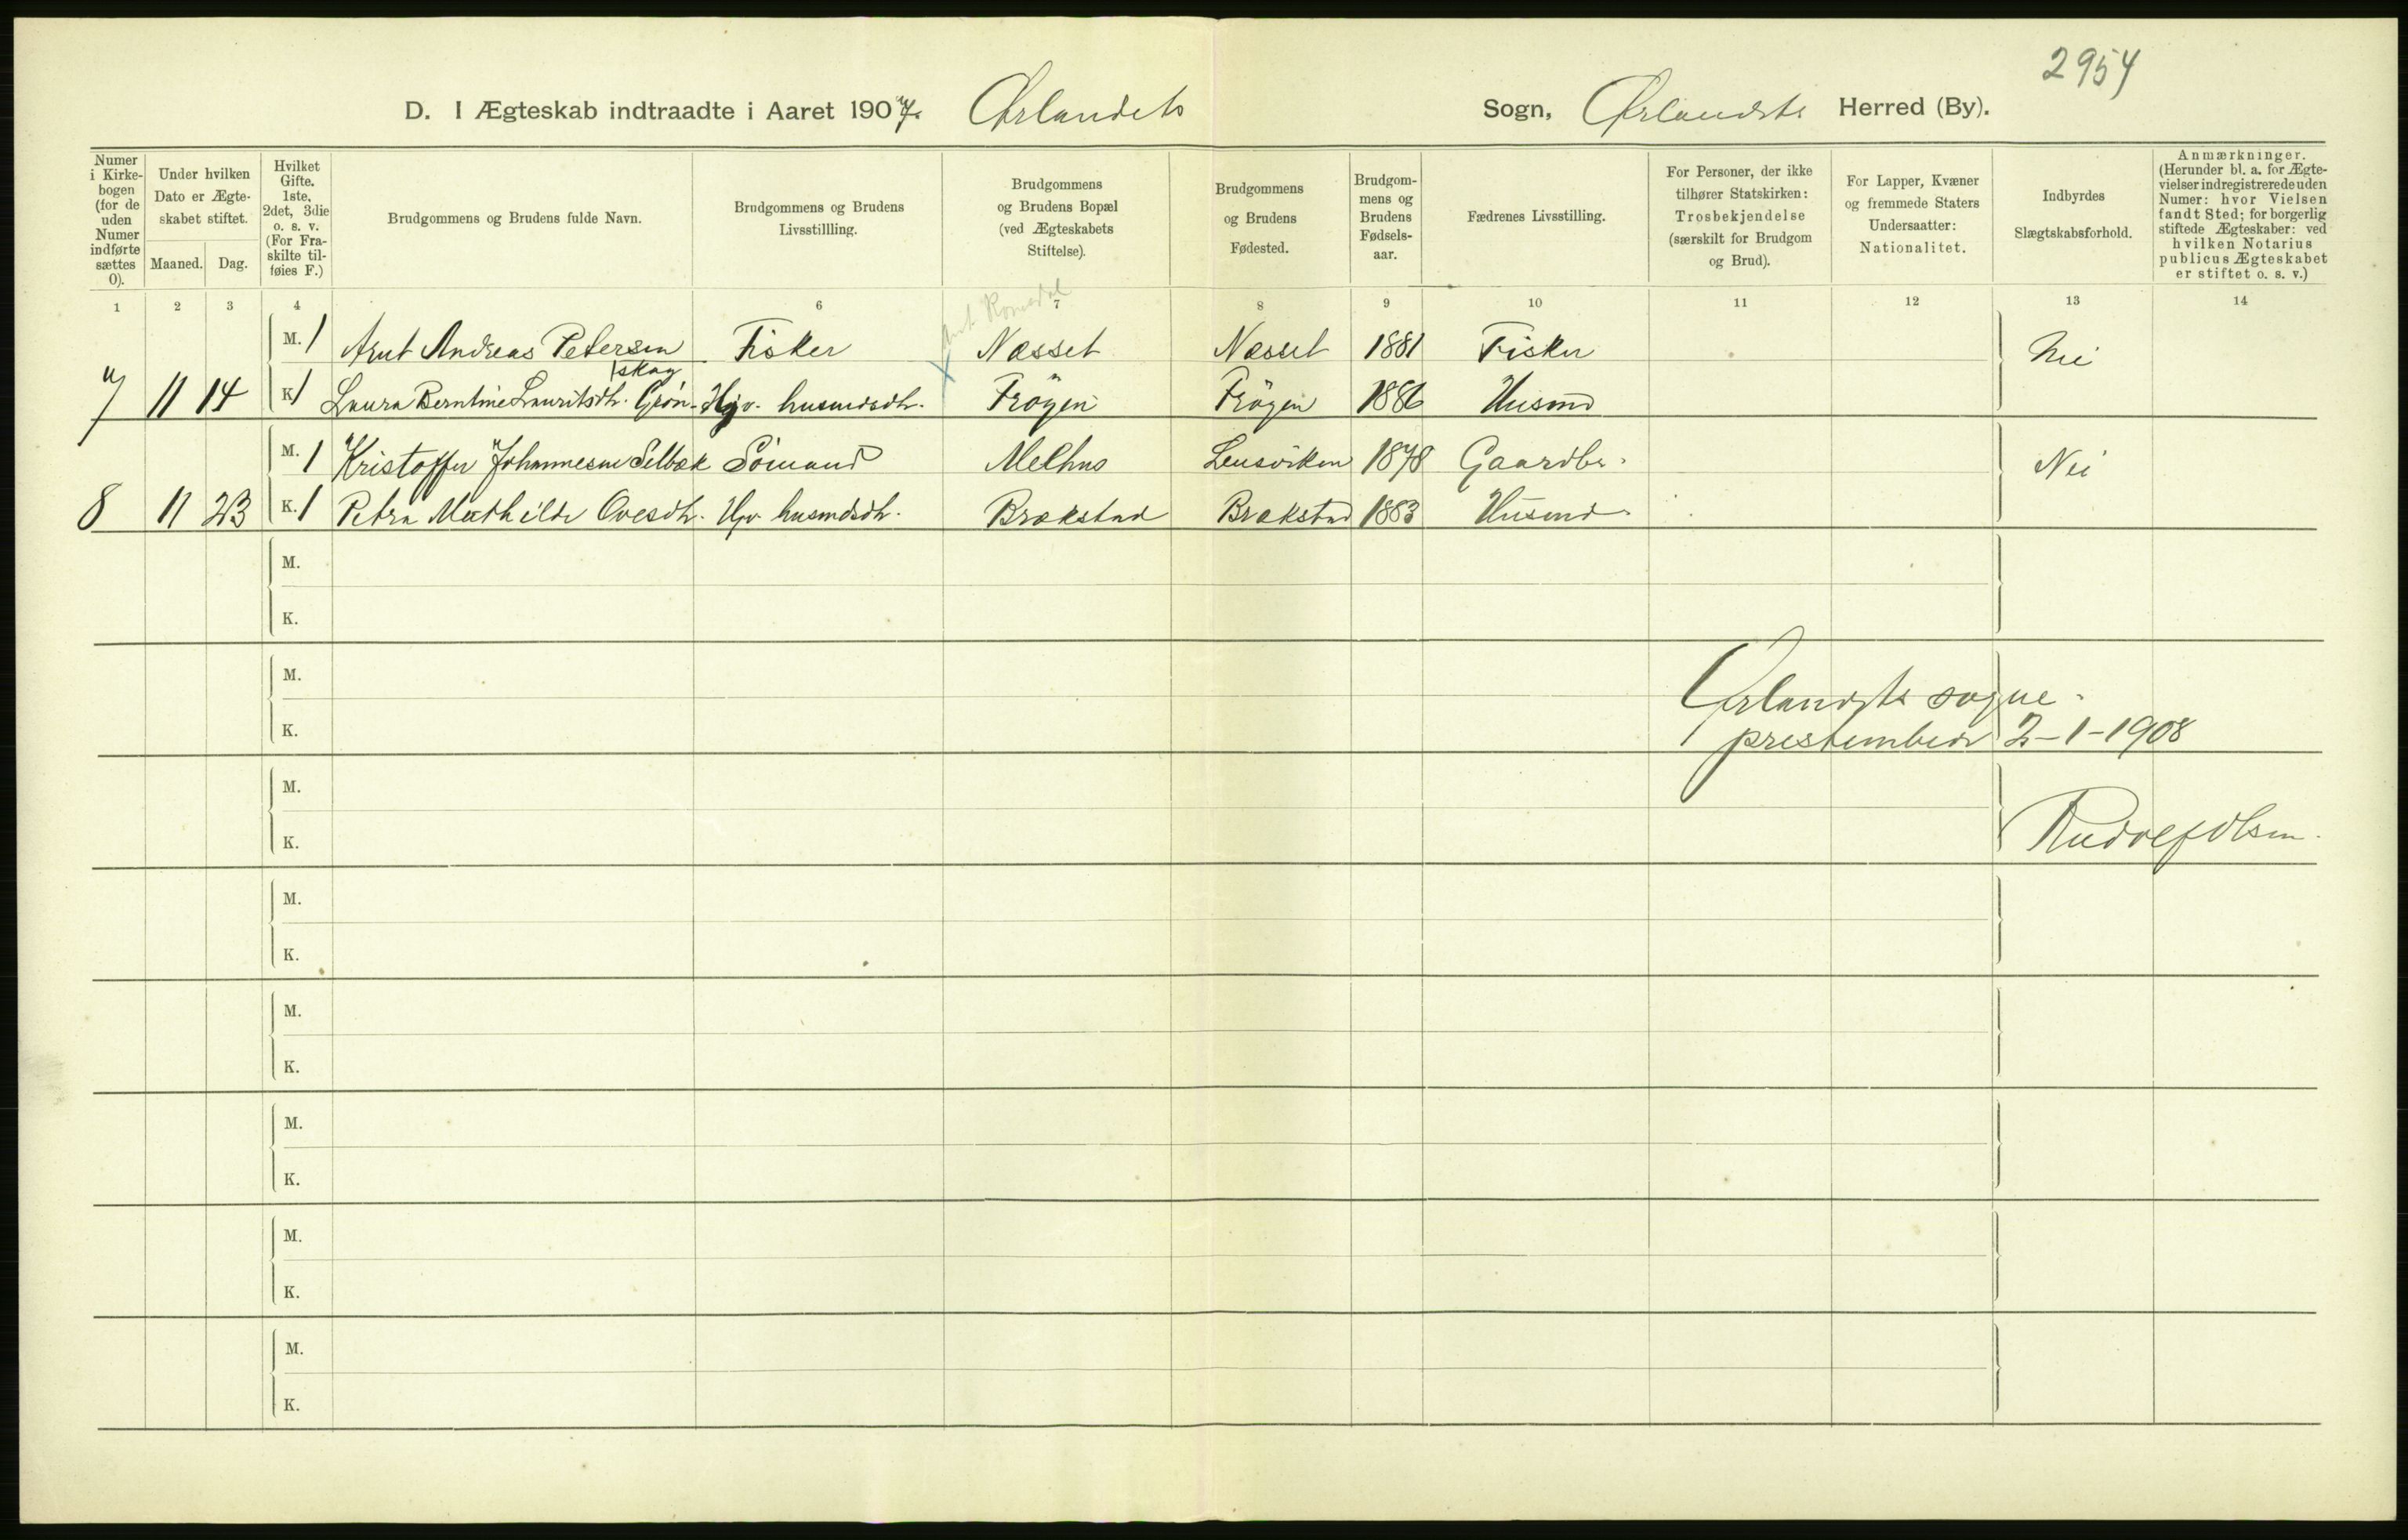 2954
D. I Ægteskab indtraadte i Aaret 1907. Ørlandets Sogn, Ørlandets Herred (By).
Numer i Kirkebogen (for de uden Numer indførte sættes 0).
Under hvilken Dato er Ægteskabet stiftet.
Maaned. Dag.
Hvilket Gifte. 1ste, 2det, 3die o. s. v. (For Fraskilte tilføies F.)
Brudgommens og Brudens fulde Navn.
Brudgommens og Brudens Livsstillling.
Brudgommens og Brudens Bopæl (ved Ægteskabets Stiftelse).
Brudgommens og Brudens Fødested.
Brudgommens og Brudens Fødselsaar.
Fædrenes Livsstilling.
For Personer, der ikke tilhører Statskirken: Trosbekjendelse (særskilt for Brudgom og Brud).
For Lapper, Kvæner og fremmede Staters Undersaatter: Nationalitet.
Indbyrdes Slægtskabsforhold.
Anmærkninger. (Herunder bl. a. for Ægtevielser indregistrerede uden Numer: hvor Vielsen fandt Sted; for borgerlig stiftede Ægteskaber: ved hvilken Notarius publicus Ægteskabet er stiftet o. s. v.)
1 2 3 4 6 7 8 9 10 11 12 13 14
M. 1 Arnt Andreas Petersen Fisker Næsset Næsset 1881 Fisker Nei
skag
7 11 14 K. 1 Laura Berntine Lauritsdtr. Grøn- Hjv. husmdsdtr. Frøyen Frøyen 1886 Husmd
M. 1 Kristoffer Johannesen Selbæk Sömand Melhus Lensviken 1878 Gaardbr. Nei
8 11 23 K. 1 Petra Mathilde Ovesdtr. Hjv husmdsdtr. Brækstad Brækstad 1883 Husmd.
M.
K.
M.
Ørlandets sogne-
K. prestembede 2-1-1908
M.
Rudolf Olsen.
K.
M.
K.
M.
K.
M.
K.
M.
K.
M.
K.